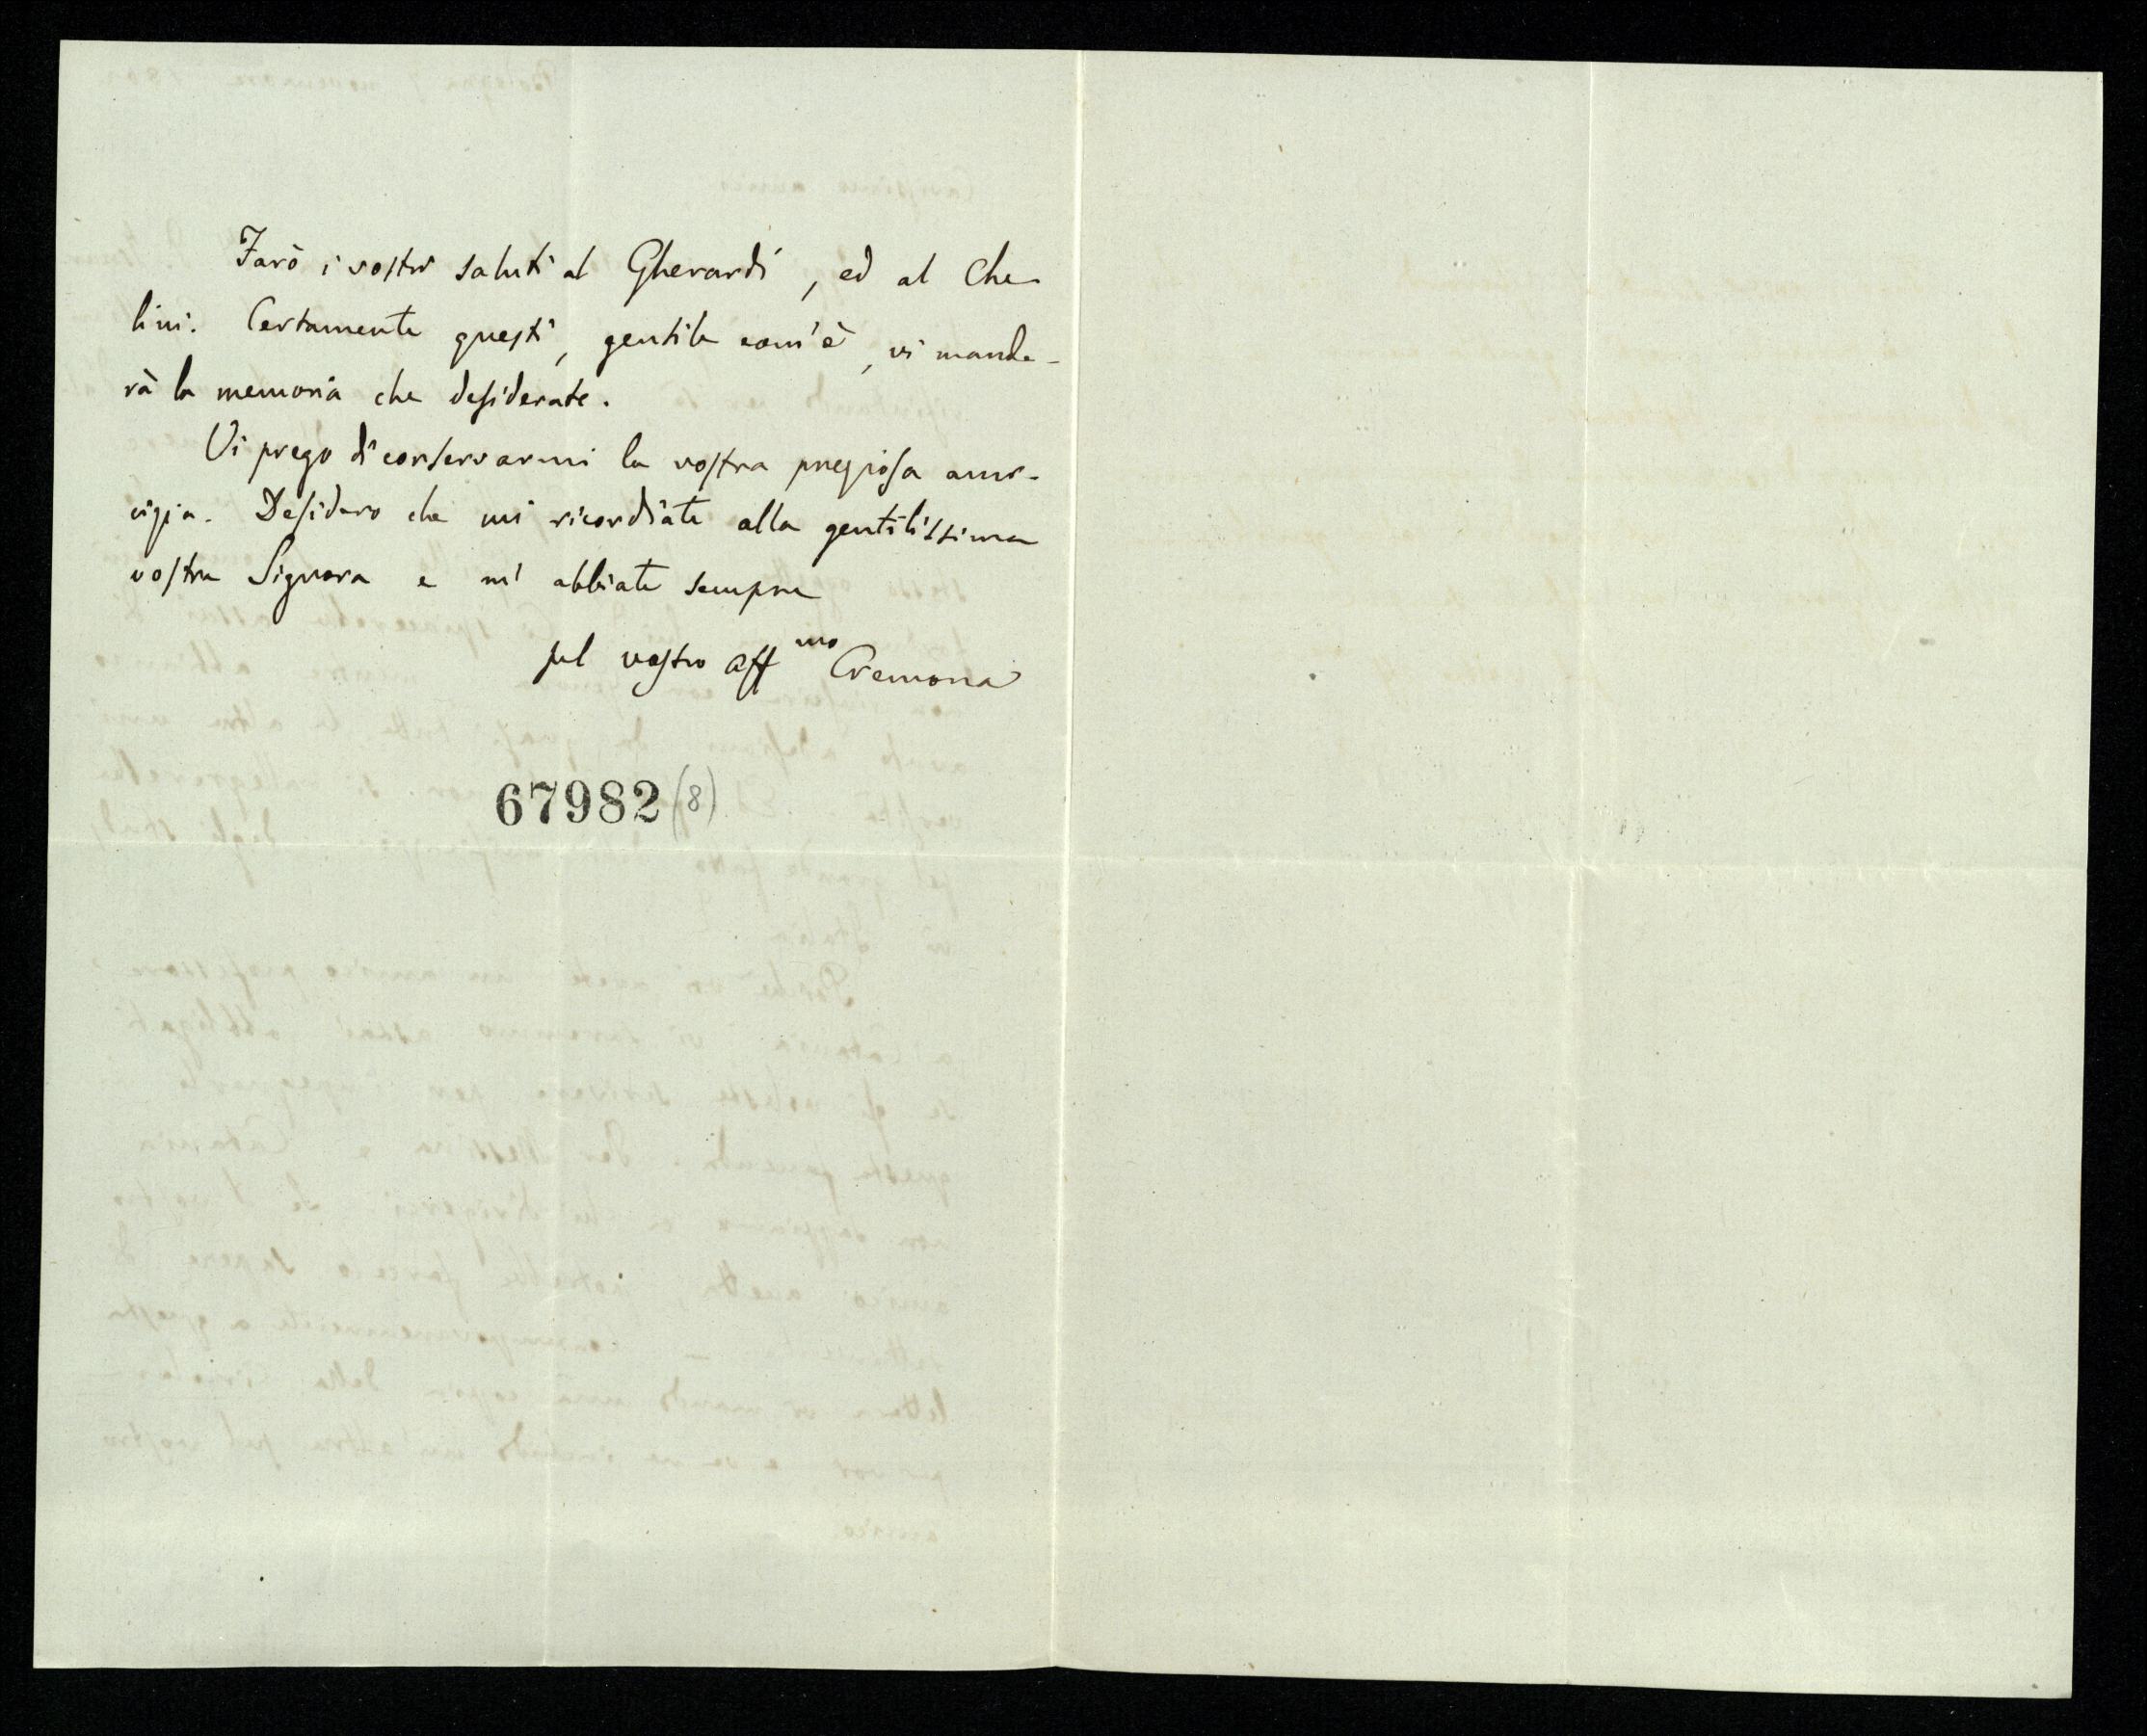 Farò i vostri saluti al Gherardi, ed al Che-
lini. Certamente questi, gentile com'è, vi mande-
rà la memoria che desiderate.
Vi prego di conservarmi la vostra preziosa ami-
cizia. Desidero che mi ricordiate alla gentilissima
vostra Signora e m'abbiate sempre
pel vostro aff mo Cremona
67982 (8)